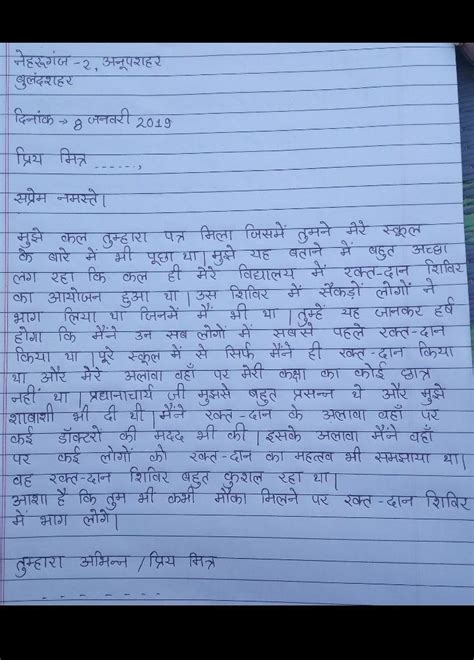 नेहरूगंज -२, अनूपशहर
बुलंदशहर
दिनांक → 8 जनवरी 2019
प्रिय मित्र ......,
सप्रेम नमस्ते।
मुझे कल तुम्हारा पत्र मिला जिसमें तुमने मेरे स्कूल
के बारे में भी पूछा था। मुझे यह बताने में बहुत अच्छा
लग रहा कि कल ही मेरे विद्यालय में रक्त-दान शिविर
का आयोजन हुआ था। उस शिविर में सैकड़ों लोगों ने
भाग लिया था जिनमें में भी था। तुम्हें यह जानकर हर्ष
होगा कि मैंने उन सब लोगों में सबसे पहले रक्त-दान
किया था। पूरे स्कूल में से सिर्फ मैंने ही रक्त-दान किया
था और मेरे अलावा वहाँ पर मेरी कक्षा का कोई छात्र
नहीं था। प्रधानाचार्य जी मुझसे बहुत प्रसन्न थे और मुझे
शाबाशी भी दी थी। मैंने रक्त-दान के अलावा वहाँ पर
कई डॉक्टरों की मदद भी की। इसके अलावा मैंने वहाँ
पर कई लोगों को रक्त-दान का महत्व भी समझाया था।
वह रक्त-दान शिविर बहुत कुशल रहा था।
आशा है कि तुम भी कभी मौका मिलने पर रक्त-दान शिविर
में भाग लोगे।
तुम्हारा अभिन्न / प्रिय मित्र
- - - - - - - -